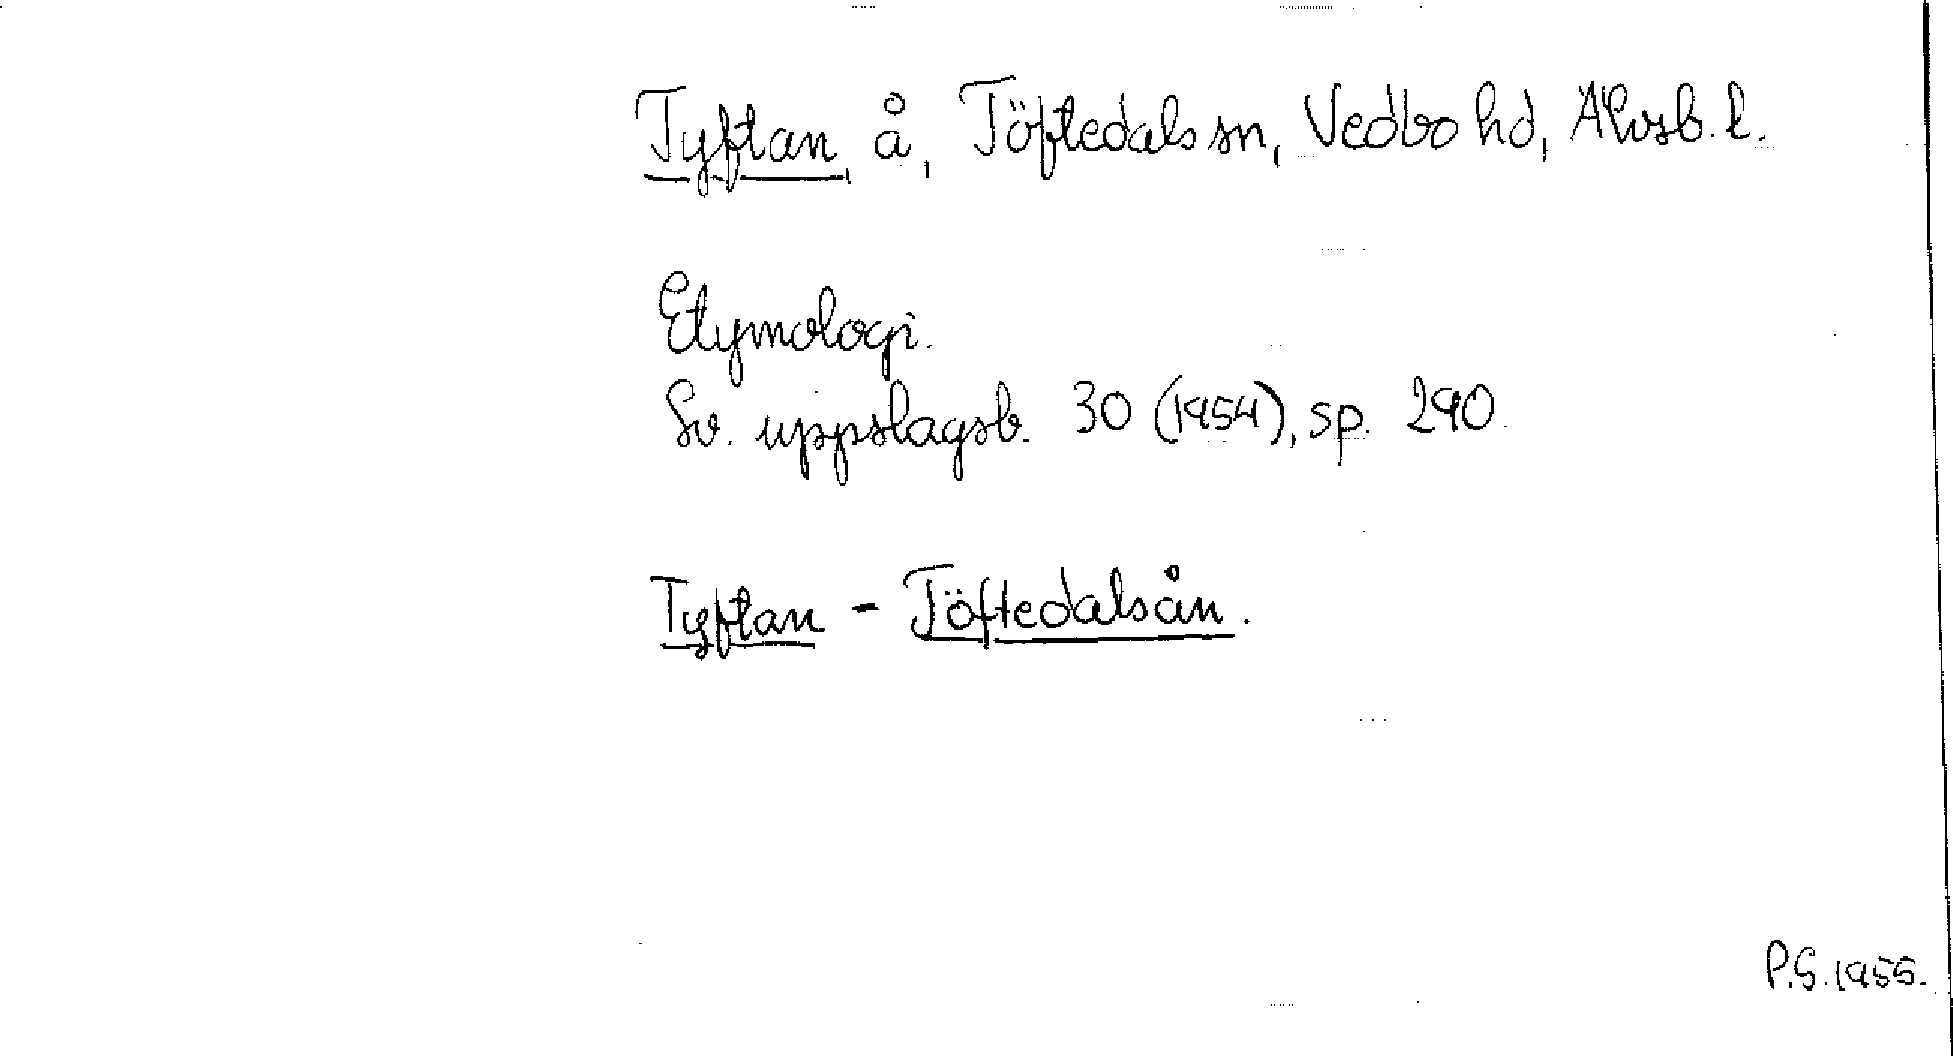 Tyftan, å, Töftedals sn, Vedbo hd, Älvsb. l.
Etymologi.
Sv. uppslagsb. 30 (1954), sp. 290.
Tyftan - Töftedalsån.
P.S. 1955.